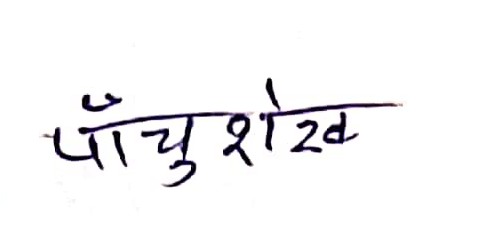 पाँचु शेख